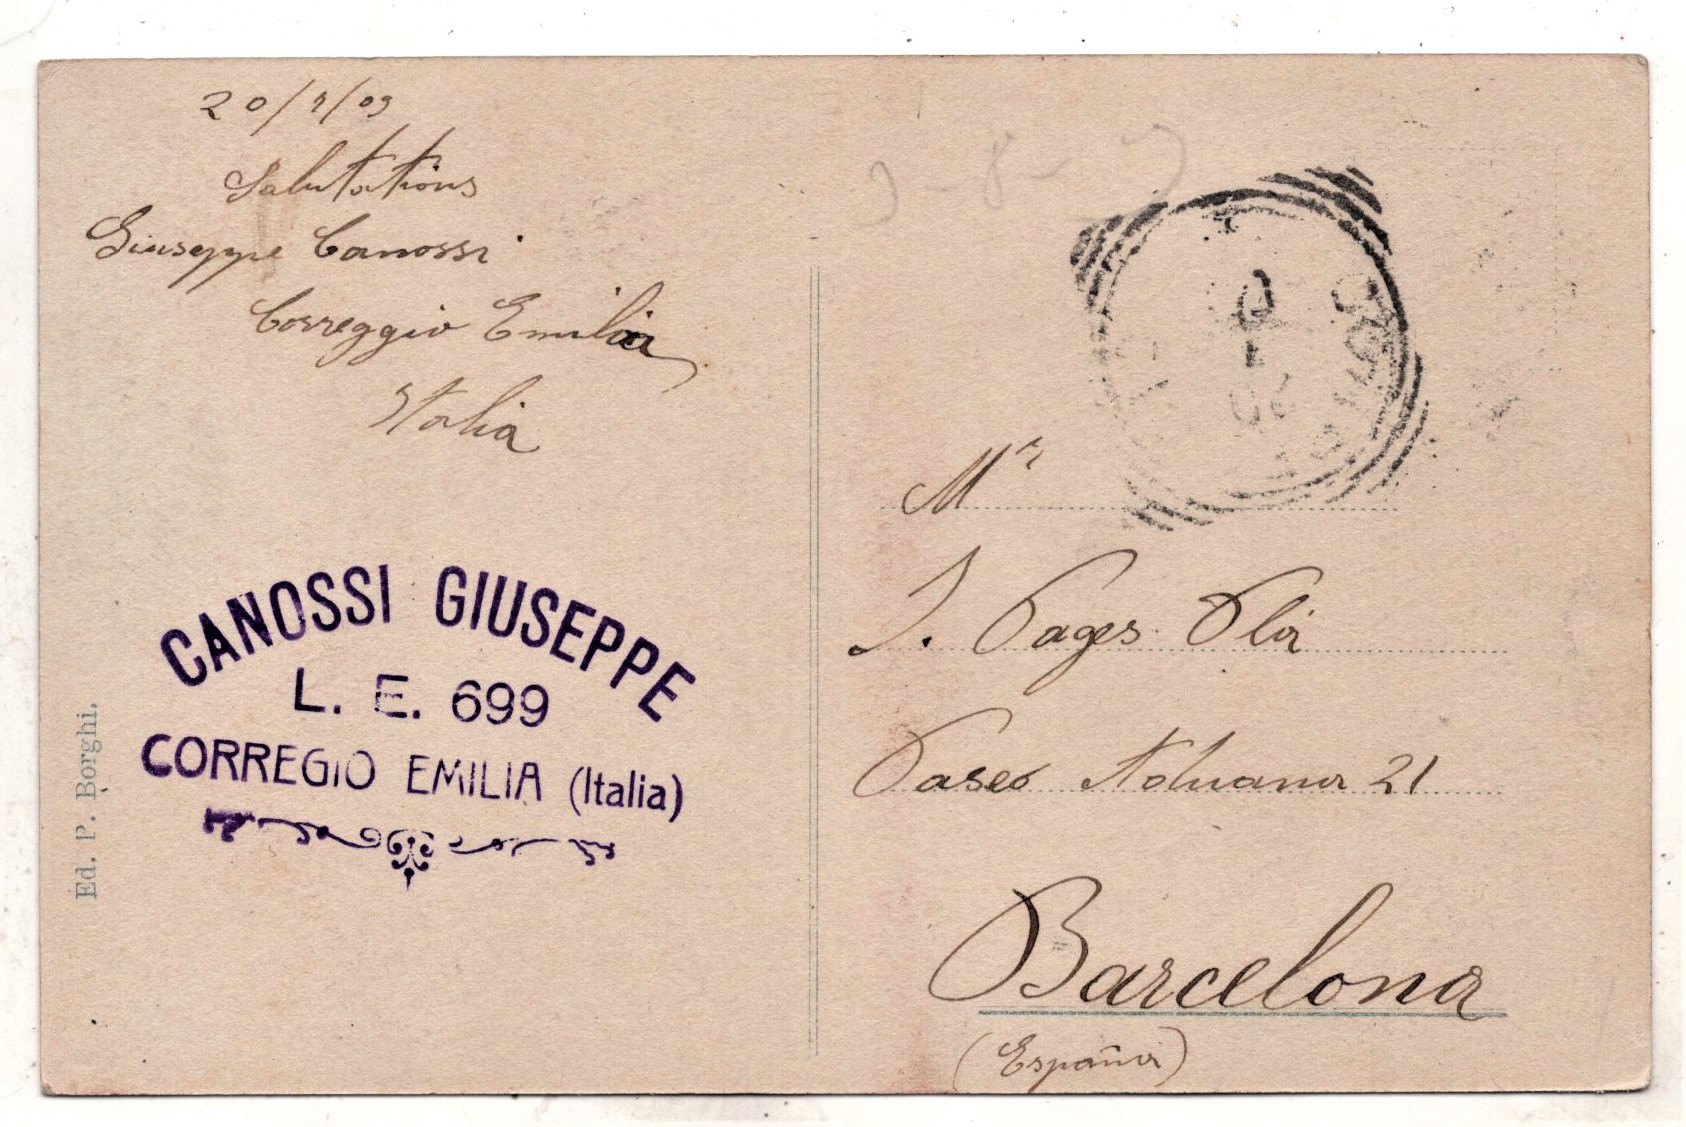 20/9/09
Salutations
Giuseppe Canossi
Correggio Emilia
Italia
CANOSSI GIUSEPPE
L. E. 699
CORREGIO EMILIA (Italia)
Ed. P. Borghi.
Mr
J. Pages Plá
Paseo Aduana 21
Barcelona
(España)